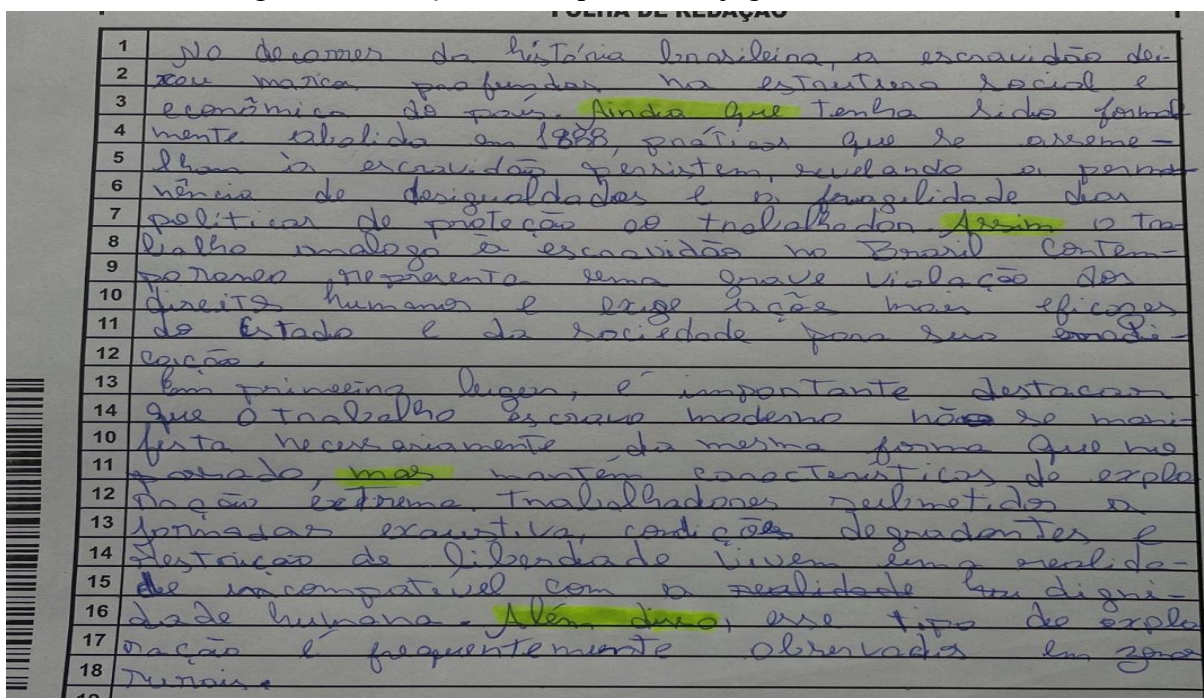 FOLHA DE REDAÇÃO
1 No decorrer da história brasileira, a escravidão dei-
2 xou marca profundas na estrutura social e
3 econômica do país. Ainda que tenha sido formal
4 mente abolida em 1888, práticas que se asseme-
5 lham à escravidão persistem, revelando a perma
6 nência de desigualdades e a fragilidade das
7 políticas de proteção ao trabalhador. Assim o tra-
8 balho análogo à escravidão no Brasil contem-
9 poraneo representa uma grave violação dos
10 direitos humanos e exige ações mais eficazes
11 do Estado e da sociedade para sua erradi-
12 cação.
13 Em primeiro lugar, é importante destacar
14 que o trabalho escravo moderno não se mani-
10 festa necessariamente da mesma forma que no
11 passado, mas mantém características de explo
12 ração extrema. Trabalhadores submetidos a
13 jornadas exaustiva, condições degradantes e
14 restrição de liberdade vivem uma realida-
15 de incompatível com a realidade digni-
16 dade humana. Além disso, esse tipo de explo
17 ração é frequentemente observados em zonas
18 rurais.